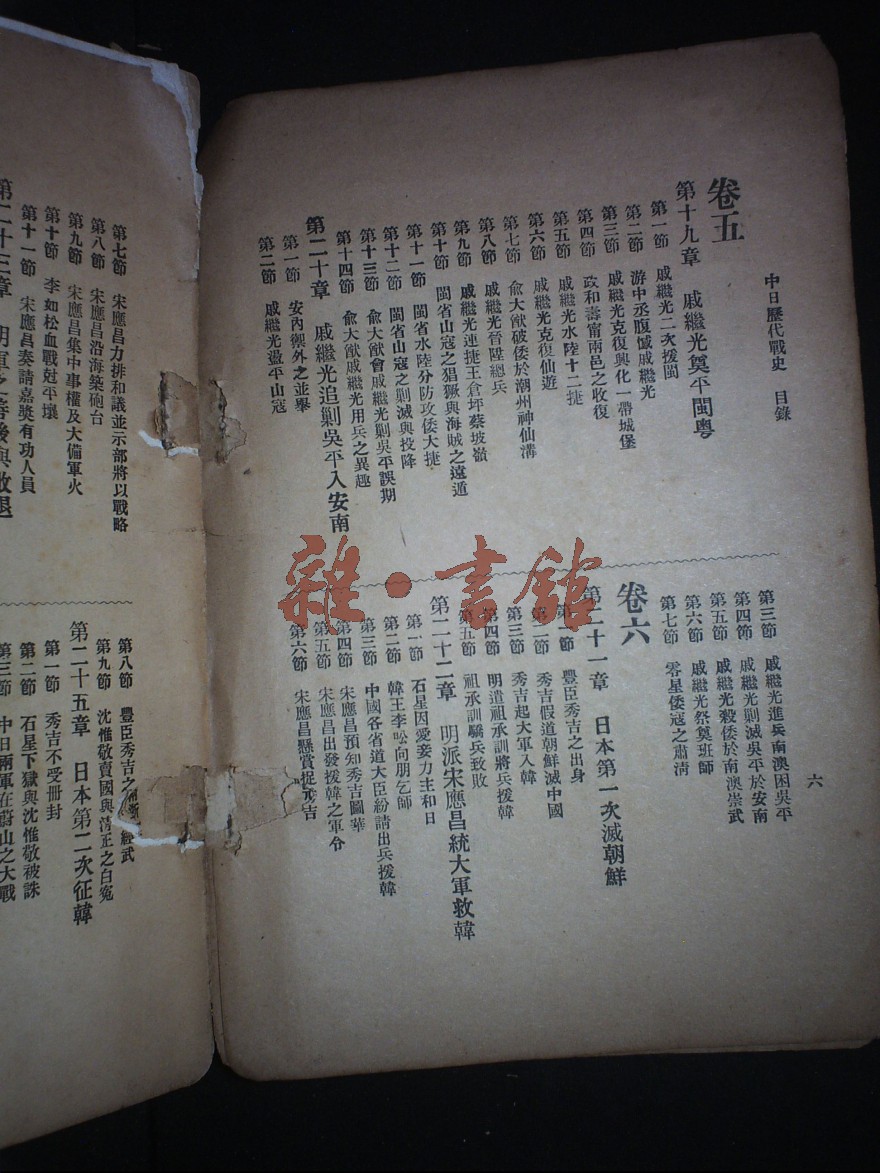 中日歷代戰史　目錄
卷五
第十九章　戚繼光奠平閩粵
第一節　戚繼光二次援閩
第二節　游中丞腹慽戚繼光
第三節　戚繼光克復興化一帶城堡
第四節　政和壽甯兩邑之收復
第五節　戚繼光水陸十二捷
第六節　戚繼光克復仙遊
第七節　俞大猷破倭於潮州神仙溝
第八節　戚繼光晉陞總兵
第九節　戚繼光連捷王倉坪蔡坡嶺
第十節　閩省山寇之猖獗與海賊之遠遁
第十一節　閩省水陸分防攻倭大捷
第十二節　閩省山寇之剿滅與投降
第十三節　俞大猷會戚繼光剿吳平誤期
第十四節　俞大猷戚繼光用兵之異趣
第二十章　戚繼光追剿吳平入安南
第一節　安內禦外之並舉
第二節　戚繼光盪平山寇
第三節　戚繼光進兵南澳困吳平
第四節　戚繼光剿滅吳平於安南
第五節　戚繼光殺倭於南澳崇武
第六節　戚繼光祭奠班師
第七節　零星倭寇之肅淸
卷六
第二十一章　日本第一次滅朝鮮
第一節　豐臣秀吉之出身
第二節　秀吉假道朝鮮滅中國
第三節　秀吉起大軍入韓
第四節　明遣祖承訓將兵援韓
第五節　祖承訓驕兵致敗
第二十二章　明派宋應昌統大軍救韓
第一節　石星因愛妾力主和日
第二節　韓王李昖向朋乞師
第三節　中國各省道大臣紛請出兵援韓
第四節　宋應昌預知秀吉圖華
第五節　宋應昌出發援韓之軍令
第六節　宋應昌懸賞捉秀吉
六
第七節　宋應昌力排和議並示部將以戰略
第八節　宋應昌沿海築砲台
第九節　宋應昌集中事權及大備軍火
第十節　李如松血戰尅平壤
第十一節　宋應昌奏請嘉獎有功人員
第八節　豐臣秀吉之經武
第九節　沈惟敬賣國與淸正之白寃
第二十五章　日本第二次征韓
第一節　秀吉不受冊封
第二節　石星下獄與沈惟敬被誅
第三節　中日兩軍在蔚山之大戰
雜·書館